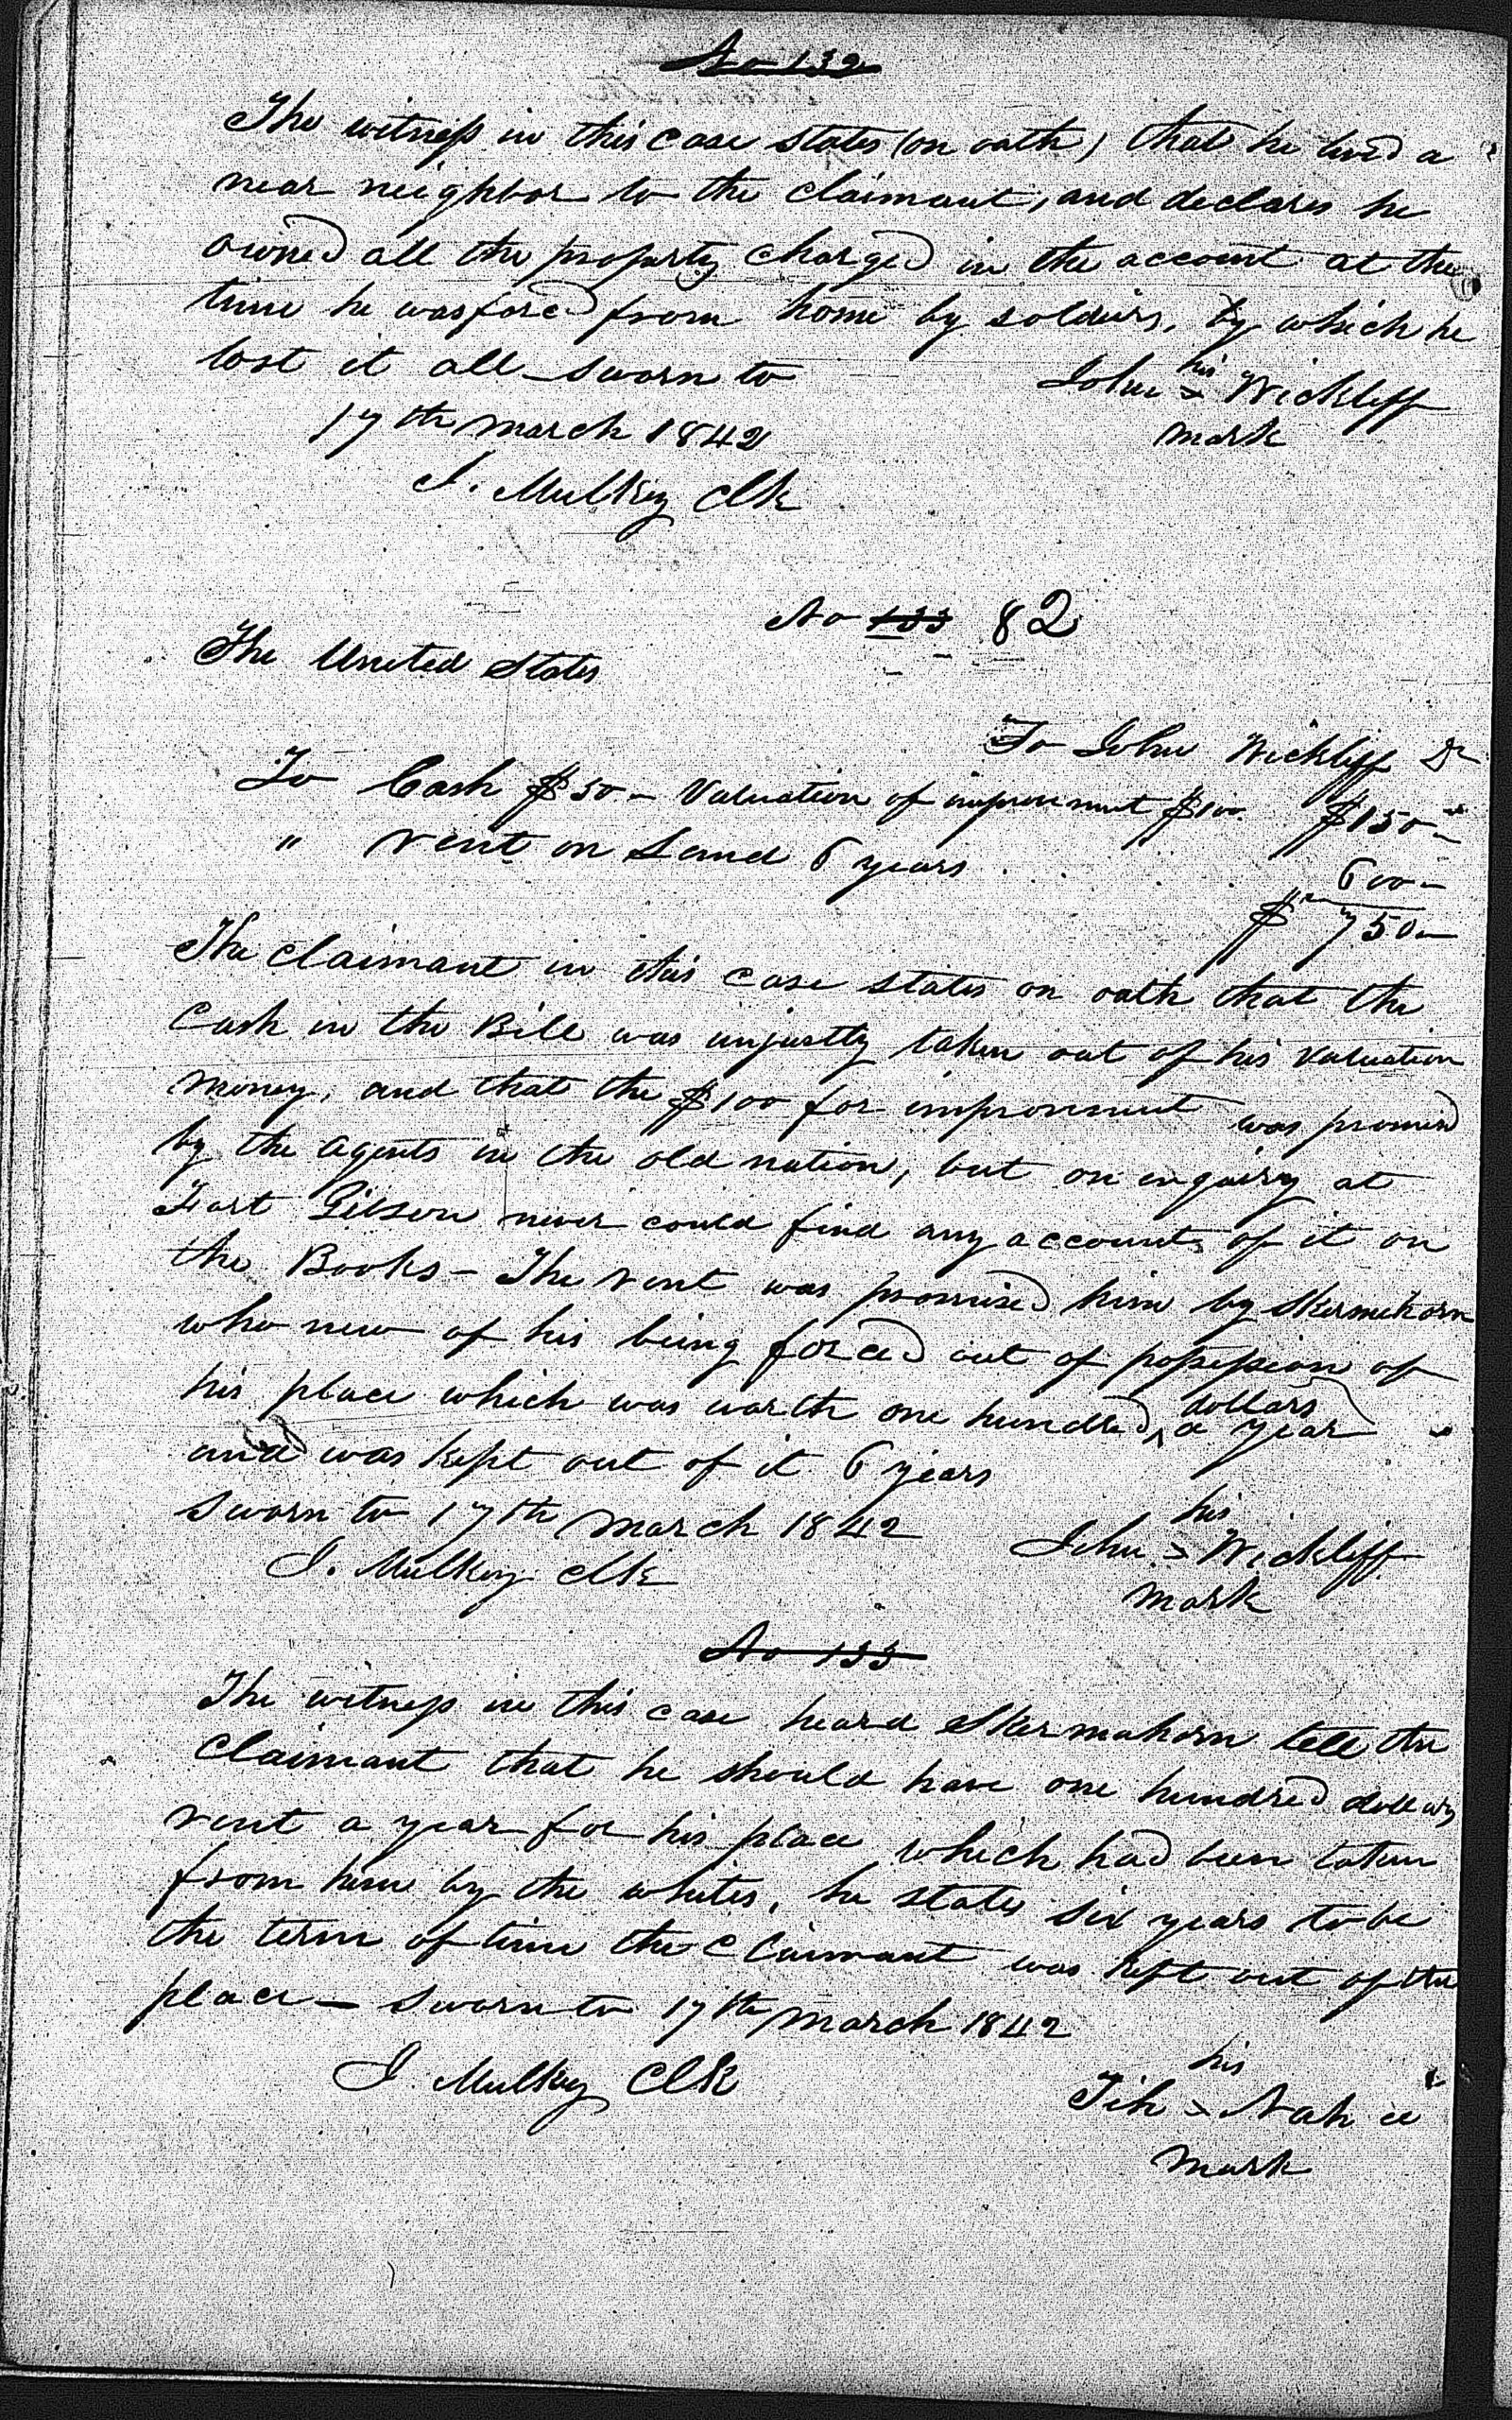 No 132
The witness in this case states (on oath) that he lived a
near neighbor to the claimant, and declares he
owned all the property charged in the account at the
time he was forced from home by soldiers, by which he
lost it all Sworn to
17th March 1842
J. Mulkey Clk
his
John x Wickliff
mark
No 133 82
The United States
To John Wickliff Dr
To Cash $50 - Valuation of improvement $100. $150-
" rent on Land 6 years . . . . 600-
$ 750-
The Claimant in this case states on oath that the
Cash in the Bill was unjustly taken out of his valuation
money, and that the $100 for improvement was promised
by the agents in the old nation, but on enquiry at
Fort Gibson never could find any account of it on
the Books - The rent was promised him by Skermehorn
who new of his being forced out of possession of
his place which was worth one hundred dollars a year
and was kept out of it 6 years
Sworn to 17th March 1842
J. Mulkey Clk
his
John x Wickliff
mark
No 133
The witness in this case heard Skermahorn tell the
Claimant that he should have one hundred dollars
rent a year for his place which had been taken
from him by the whites, he states six years to be
the term of time the Claimant was kept out of the
place - Sworn to 17th March 1842
J. Mulkey Clk
his
Tih x Nah ee
mark